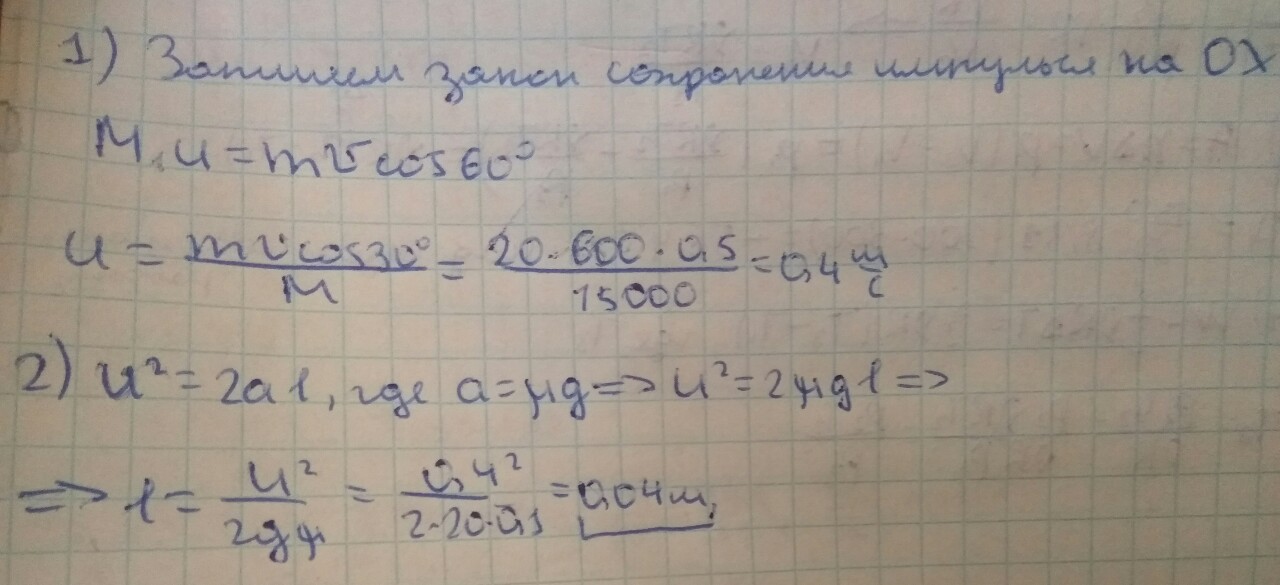 1) Запишем закон сохранения импульса на OX
M·u = mv cos60°
u = mv cos30° / M = 20·600·0,5 / 15000 = 0,4 м/с
2) u² = 2al, где a = μg => u² = 2μgl =>
=> l = u² / 2gμ = 0,4² / 2·20·0,1 = 0,04м,